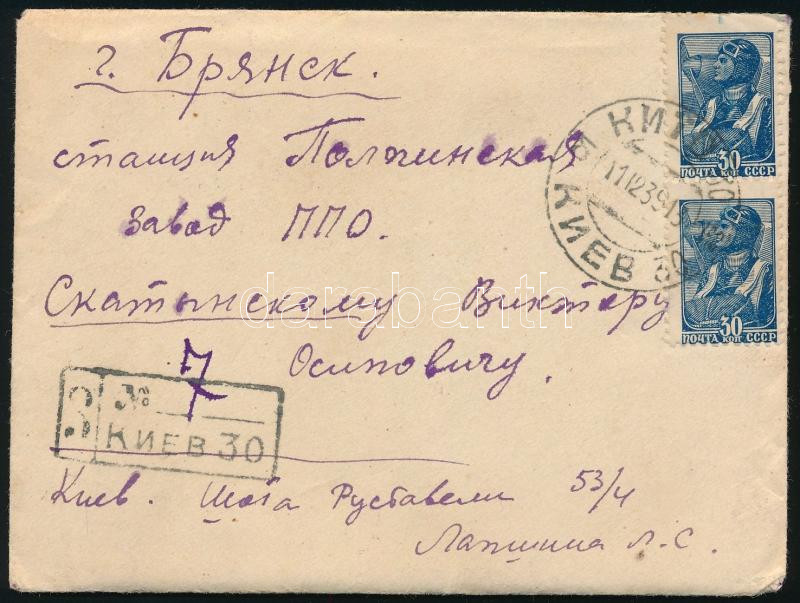 г. Брянск.
станция Полпинская
завод ППО.
Скатынскому Виктору
Осиповичу.
7
З №
КИЕВ 30
Киев. Шота Руставели 53/4
Лапшина Л. С.
30
ПОЧТА КОП СССР
30
ПОЧТА КОП СССР
КИЕВ 30
darabanth